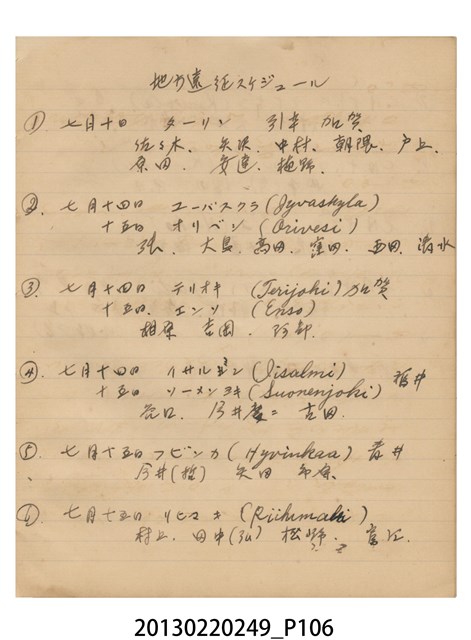 地方遠征スケジュール
① 七月十日 ターリン 引率 加賀
佐々木、矢沢、中村、朝隈、戸上、
原田、安達、植野、
②. 七月十四日 ユーバスクラ(Jyvaskyla)
十五日 オリベシ(Orivesi)
張、大島、高田、窪田、西田、清水
③. 七月十四日 テリオキ (Terijoki) 加賀
十五日. エンソ (Enso)
相原 吉岡. 阿部
④. 七月十四日 イサルミン(Iisalmi) 福井
十五日 ソーメンヨキ(Suonenjoki)
谷口. 今井 吉田.
⑤. 七月十五日 フビンカ(Hyvinkaa) 青井
今井(哲) 矢田
⑥. 七月十五日 リヒマキ (Riihimaki)
村上. 田中(弘) 松野.
20130220249_P106